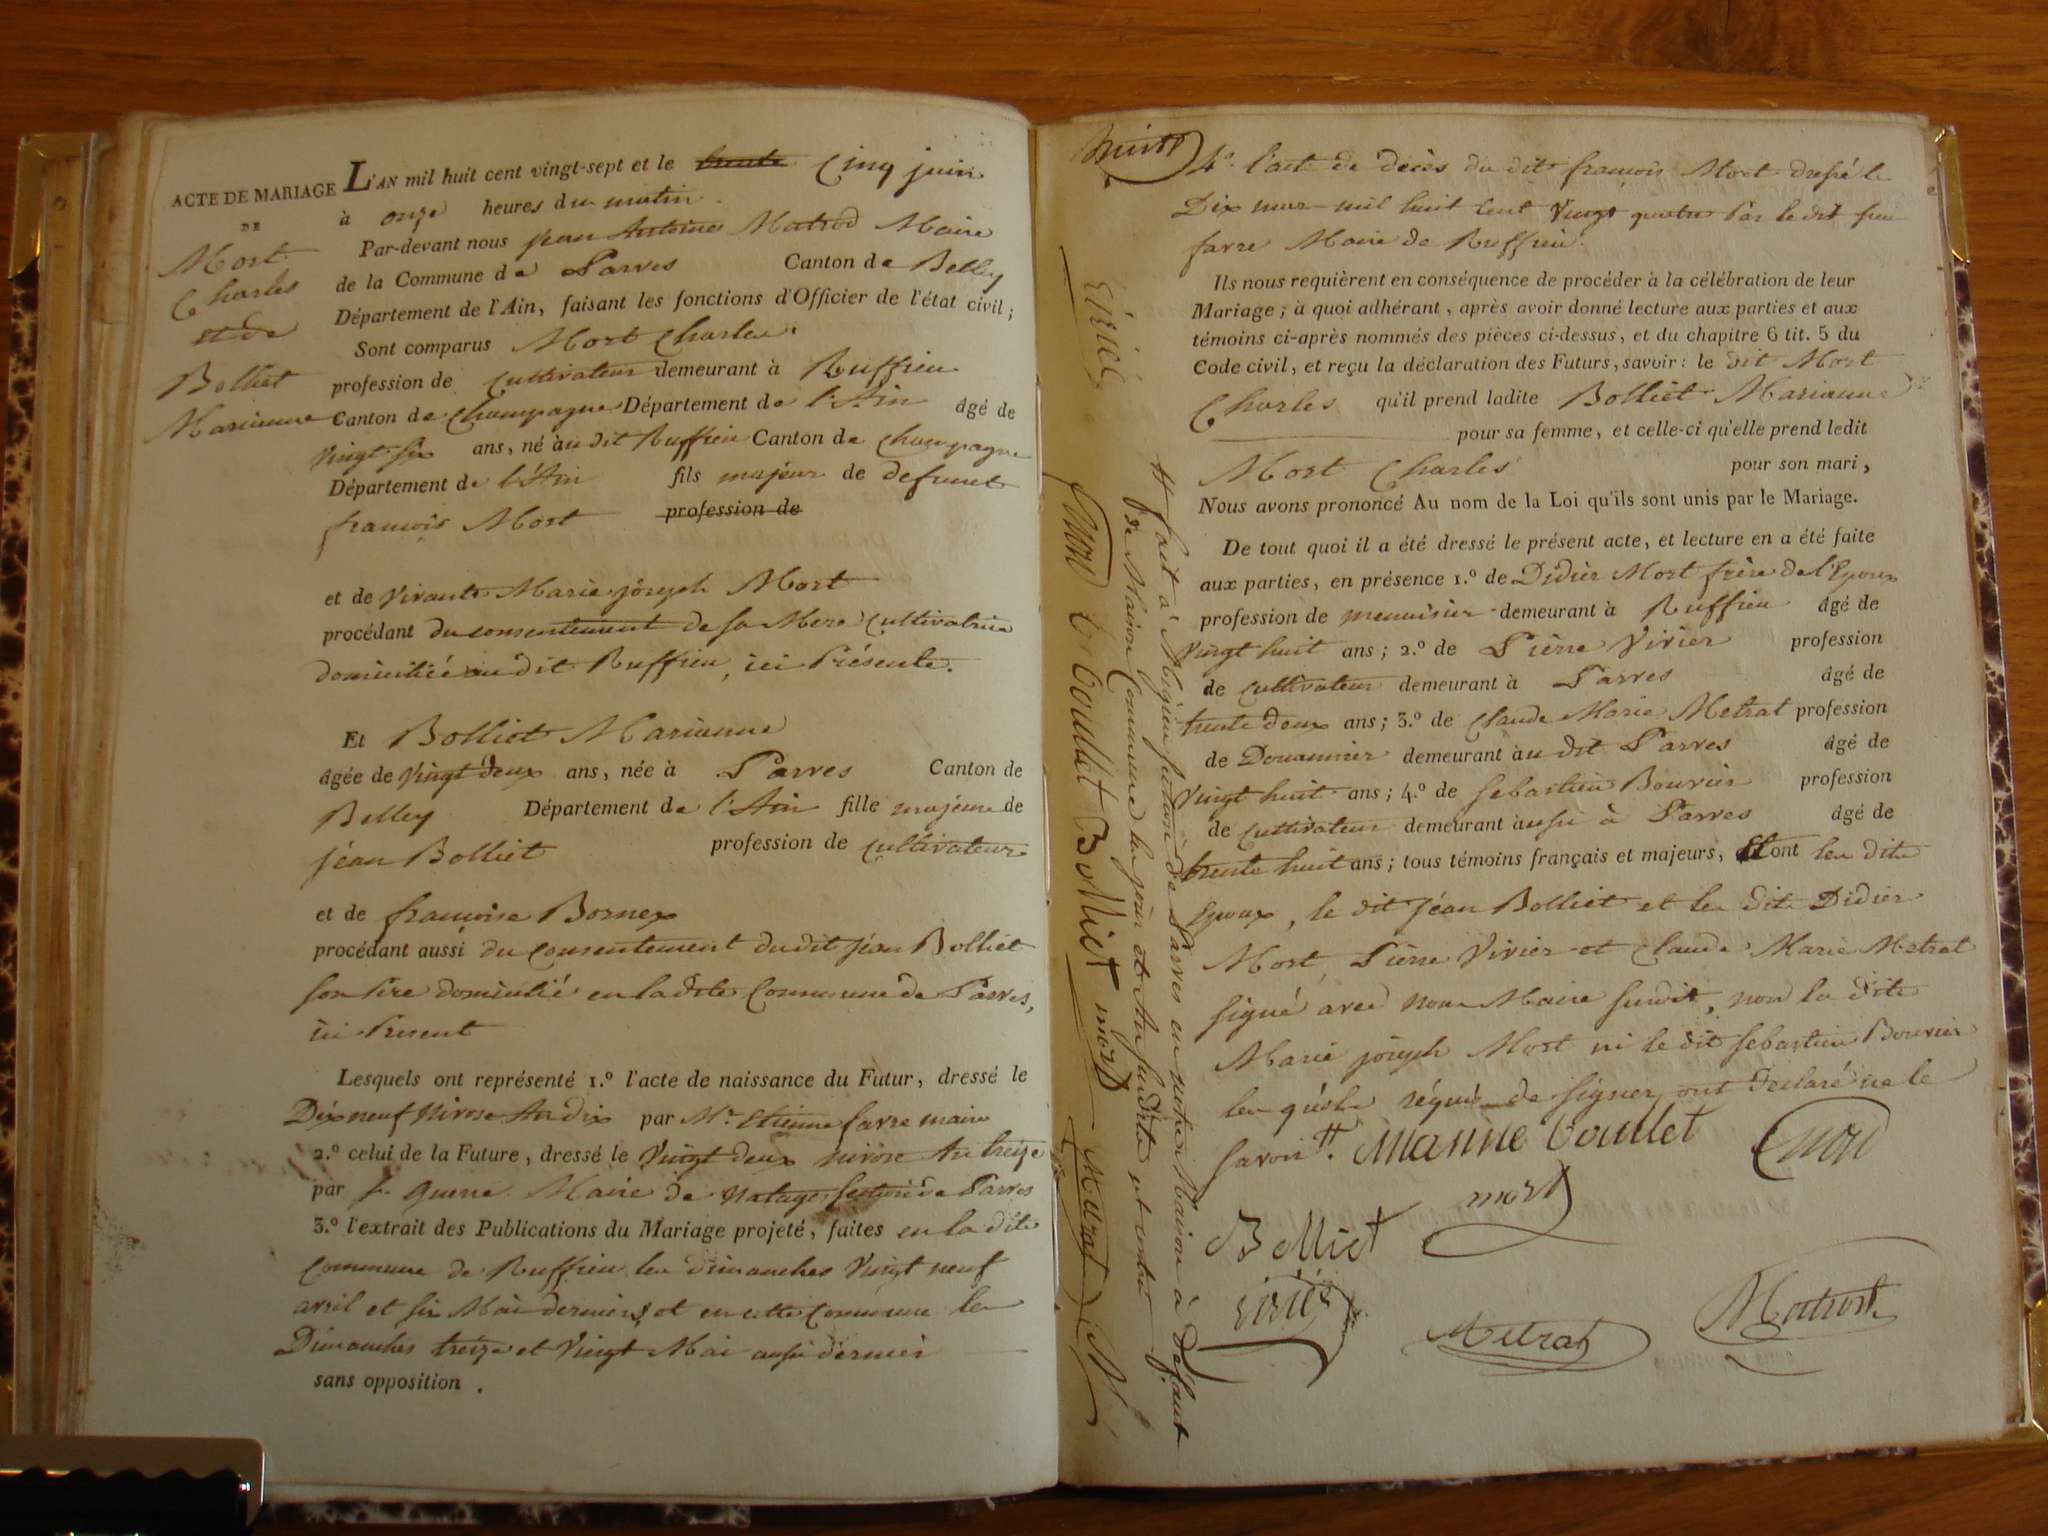 ACTE DE MARIAGE
DE
Mort
Charles
et de
Bolliet
Marianne
L'AN mil huit cent vingt-sept et le trente Cinq juin
à onze heures du matin.
Par-devant nous jean Antoine Matrod Maire
de la Commune de Parves Canton de Belley
Département de l'Ain, faisant les fonctions d'Officier de l'état civil;
Sont comparus Mort Charles
profession de Cultivateur demeurant à Ruffieu
Canton de Champagne Département de l'Ain âgé de
Vingt six ans, né au dit Ruffieu Canton de Champagne
Département de l'Ain fils majeur de defunct
françois Mort profession de
et de vivante Marie jóseph Mort
procédant du consentement de sa Mere Cultivatrice
domiciliée au dit Ruffieu, ici Présente.
Et Bolliet Marianne
âgée de vingt deux ans, née à Parves Canton de
Belley Département de l'Ain fille majeure de
jéan Bolliet profession de cultivateur
et de françoise Bornex
procédant aussi du consentement du dit jéan Bolliet
son Pere domicilié en la dite Commune de Parves,
ici Present
Lesquels ont représenté 1.º l'acte de naissance du Futur, dressé le
Dix neuf Nivose An dix par Mr. Etienne favre maire
2.º celui de la Future, dressé le Vingt deux nivose An treize
par Maire de Nattages section de Parves
3.º l'extrait des Publications du Mariage projeté, faites en la dite
Commune de Ruffieu les dimanches Vingt neuf
avril et six Mai derniers, et en cette Commune les
Dimanches treize et Vingt Mai aussi dernier
sans opposition.
4º. l'acte de décès du dit françois Mort dressé le
Dix mars mil huit Cent Vingt quatre Par le dit
favre Maire de Ruffieu.
Ils nous requièrent en conséquence de procéder à la célébration de leur
Mariage; à quoi adhérant, après avoir donné lecture aux parties et aux
témoins ci-après nommés des pièces ci-dessus, et du chapitre 6 tit. 5 du
Code civil, et reçu la déclaration des Futurs, savoir: le dit Mort
Charles qu'il prend ladite Bolliet Marianne
pour sa femme, et celle-ci qu'elle prend ledit
Mort Charles pour son mari,
Nous avons prononcé Au nom de la Loi qu'ils sont unis par le Mariage.
De tout quoi il a été dressé le présent acte, et lecture en a été faite
aux parties, en présence 1.º de Didier Mort frère de l'Epoux
profession de menuisier demeurant à Ruffieu âgé de
Vingt huit ans; 2.º de Pierre Vivier profession
de cultivateur demeurant à Parves âgé de
trente deux ans; 3.º de Claude Marie Metrat profession
de Douannier demeurant au dit Parves âgé de
Vingt huit ans; 4.º de Sebastien Bouvier profession
de cultivateur demeurant aussi à Parves âgé de
trente huit ans; tous témoins français et majeurs, Et ont les dits
Epoux, le dit jéan Bolliet et les dits Didier
Mort, Pierre Vivier et Claude Marie Metrat
signé avec nous Maire susdit, non la dite
Marie jóseph Mort ni le dit Sebastien Bouvier
les quels réquis de signer, ont déclaré ne le
savoir #.
Bolliet
mort
Metrat
Matrod
# fait à Section de Parves en notre Mairie à defaut
de Maison Commune les jour et An susdits
Bolliet mort Metrat